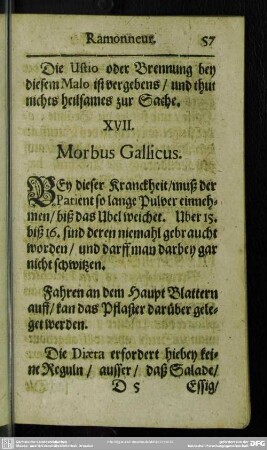 Ramonneur. 57
Die Ustio oder Brennung bey
diesem Malo ist vergebens / und thut
nichts heilsames zur Sache.
XVII.
Morbus Gallicus.
BEy dieser Kranckheit / muß der
Patient so lange Pulver einneh-
men / biß das Ubel weichet. Uber 15.
biß 16. sind deren niemahl gebraucht
worden / und darff man darbey gar
nicht schwitzen.
Fahren an dem Haupt Blattern
auff / kan das Pflaster darüber gele-
get werden.
Die Diæta erfordert hiebey kei-
ne Reguln / ausser / daß Salade /
D 5 Essig /